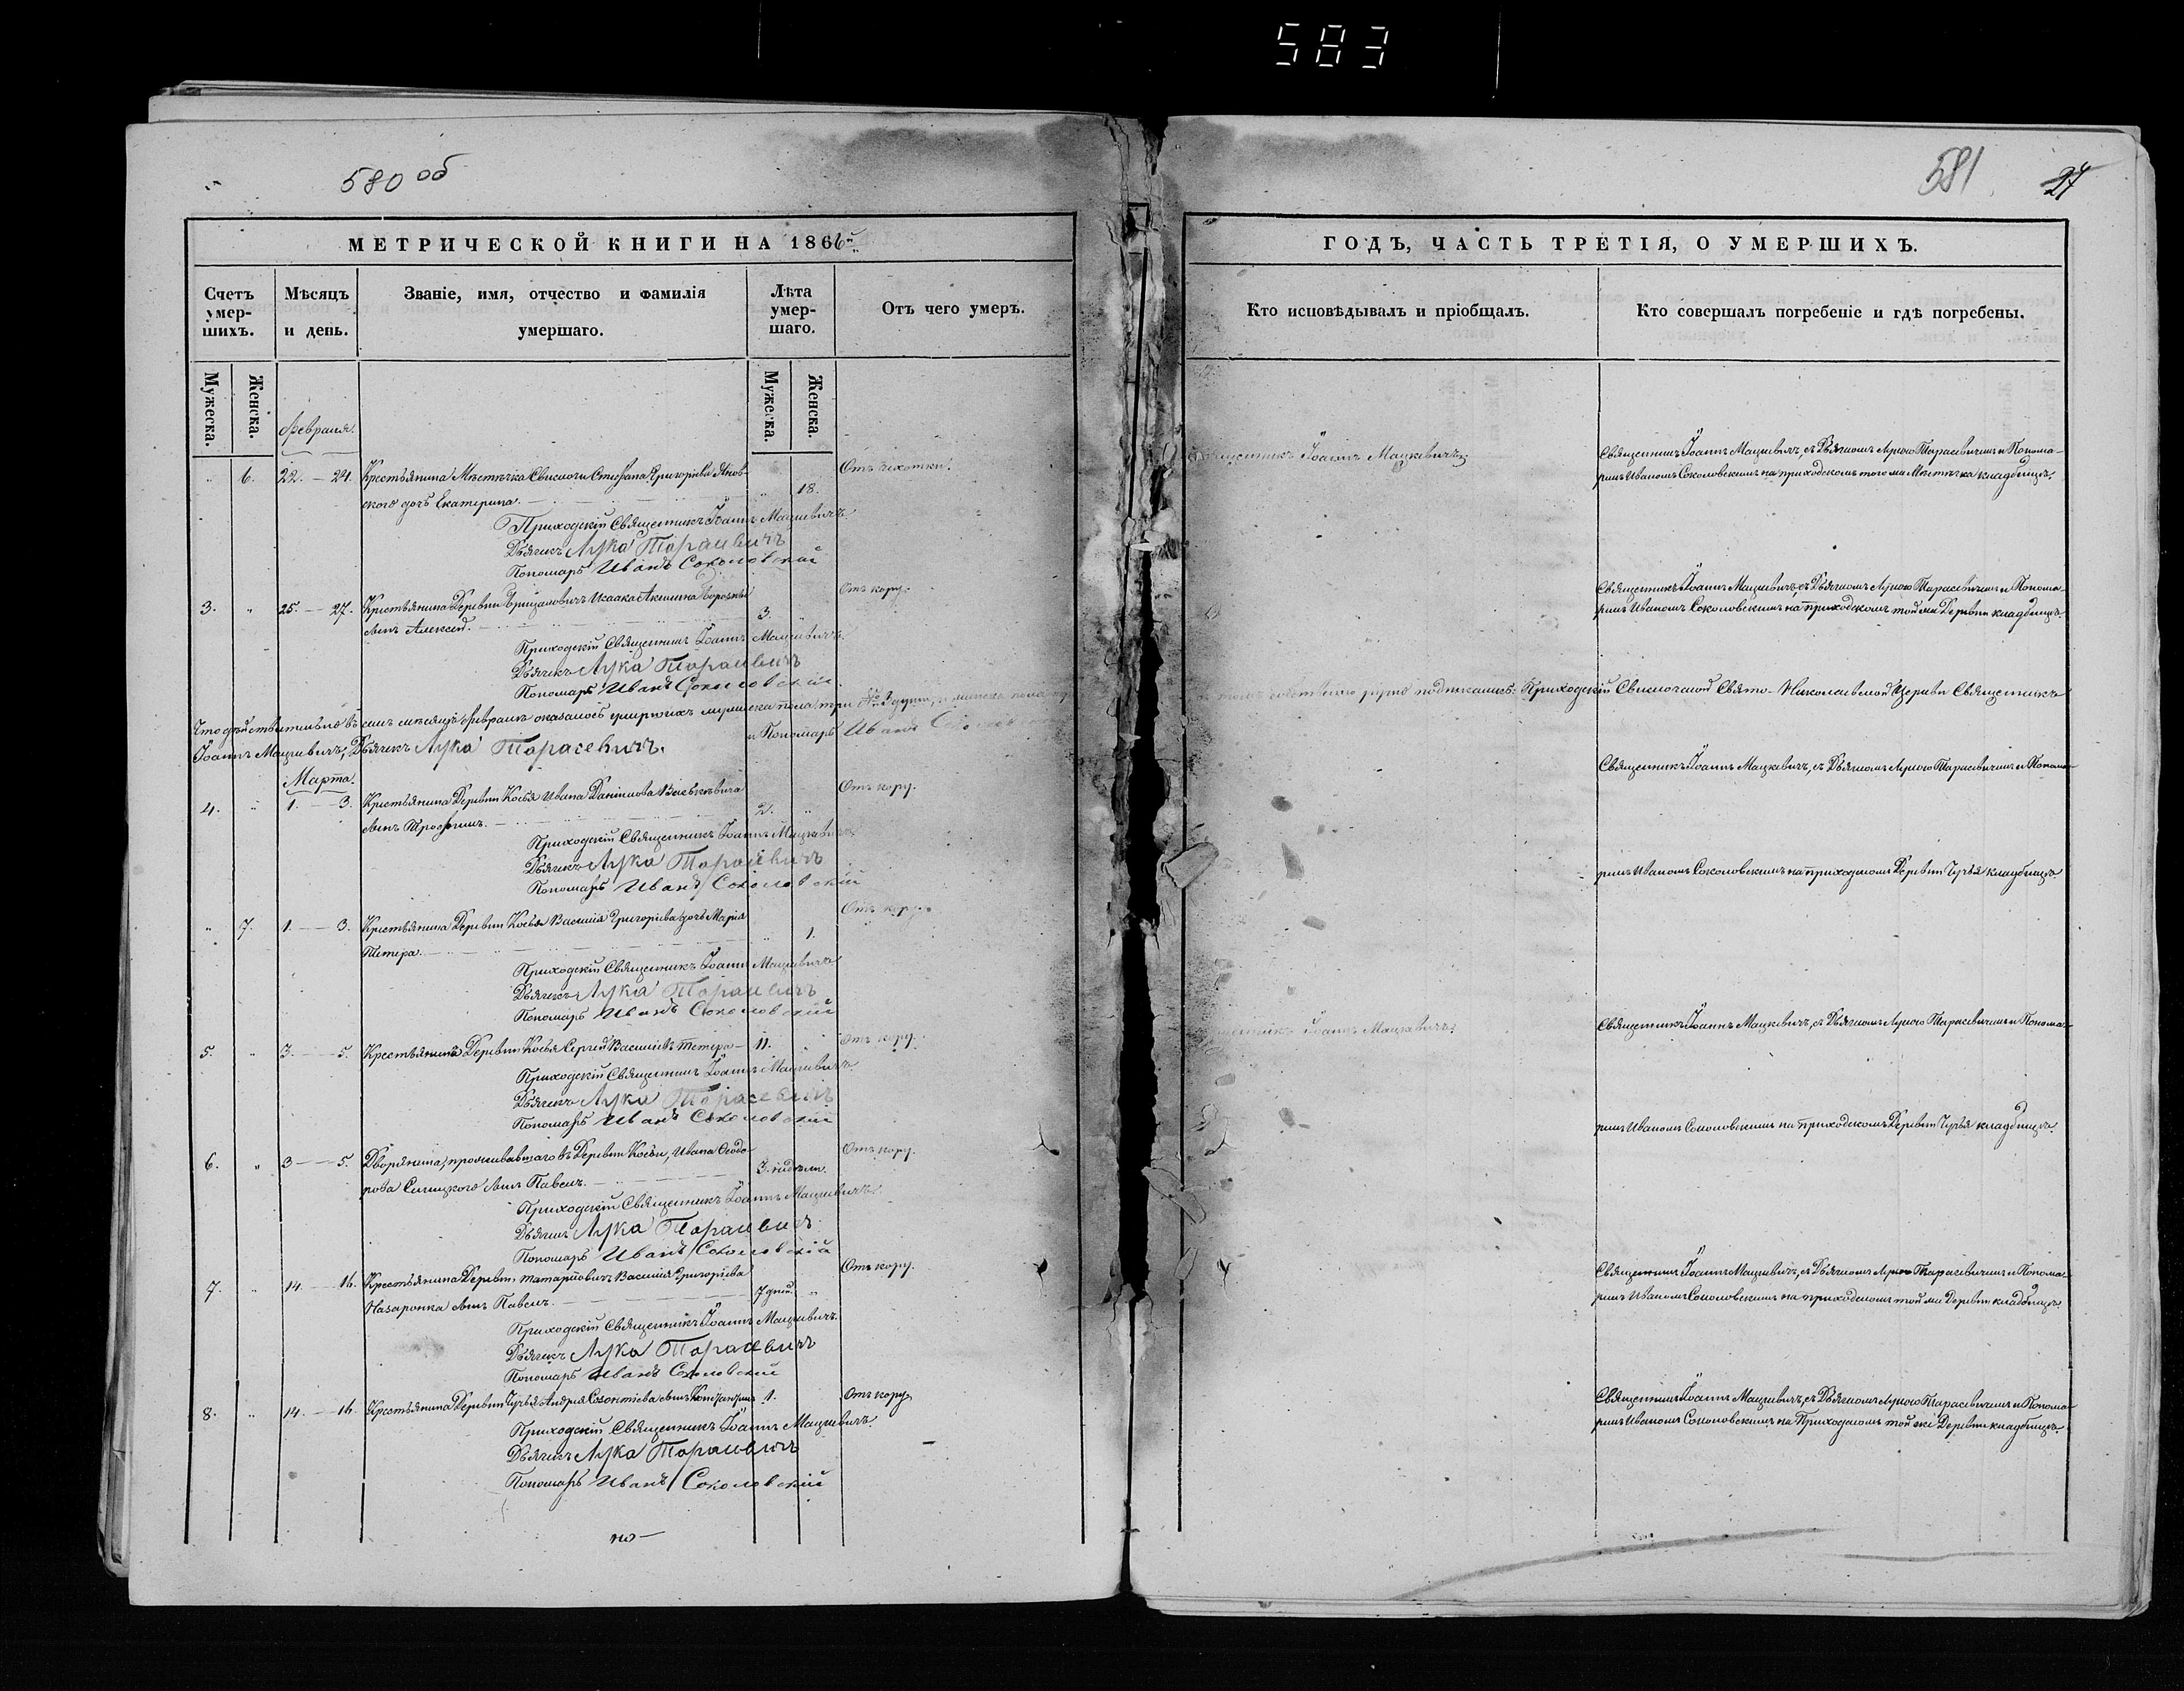 583
580 об
МЕТРИЧЕСКОЙ КНИГИ НА 1866й
Счетъ умер-шихъ.
Мѣсяцъ и день.
Званіе, имя, отчество и фамилія умершаго.
Лѣта умер-шаго.
Отъ чего умеръ.
Мужеска.
Женска.
Мужеска.
Женска.
Февраля.
" 6. 22. — 24. Крестьянина Мѣстечка Свислочи Стефана Григорьева Янов-
ского дочь Екатерина. 18. Отъ чахотки.
Приходскій Священникъ Іоаннъ Мацкевичъ.
Дьячекъ Лука Тарасевичъ
Пономарь Иванъ Соколовскій
3. " 25. — 27. Крестьянина Деревни Исаака Акимина
сынъ Алексѣй. 3. " Отъ кору.
Приходскій Священникъ Іоаннъ Мацкевичъ.
Дьячекъ Лука Тарасевичъ
Пономарь Иванъ Соколовскій.
Что дѣйствительно въ семъ мѣсяцѣ февралѣ оказалось умершихъ мужеска пола три
Іоаннъ Мацкевичъ, Дьячекъ Лука Тарасевичъ. и Пономарь Иванъ
Марта.
4. " 1. — 3. Крестьянина Деревни Косья Ивана Даніилова
сынъ Трофимъ. 2. " Отъ кору.
Приходскій Священникъ Іоаннъ Мацкевичъ
Дьячекъ Лука Тарасевичъ
Пономарь Иванъ Соколовскій
" 7. 1. — 3. Крестьянина Деревни Косья Василія Григорьева дочь Марія
Тетера. " 1. Отъ кору.
Приходскій Священникъ Іоаннъ Мацкевичъ
Дьячекъ Лука Тарасевичъ
Пономарь Иванъ Соколовскій
5. " 3. — 5. Крестьянинъ Деревни Косья Сергѣй Васильевъ Тетера — 11. " Отъ кору.
Приходскій Священникъ Іоаннъ Мацкевичъ.
Дьячекъ Лука Тарасевичъ
Пономарь Иванъ Соколовскій
6. " 3 — 5. Дворянина, проживавшаго въ Деревни Косьи, Ивана Ѳеодо-
рова Синицкого сынъ Павелъ. 3. недѣли. Отъ кору.
Приходскій Священникъ Іоаннъ Мацкевичъ.
Дьячекъ Лука Тарасевичъ
Пономарь Иванъ Соколовскій
7. " 14. — 16. Крестьянина Деревни Татарковичъ Василія Григорьева
Назаронка сынъ Павелъ. 7 дней. " Отъ кору.
Приходскій Священникъ Іоаннъ Мацкевичъ.
Дьячекъ Лука Тарасевичъ
Пономарь Иванъ Соколовскій
8. " 14. — 16. Крестьянина Деревни Чучья Андрея Созонтіева сынъ 1. Отъ кору.
Приходскій Священникъ Іоаннъ Мацкевичъ.
Дьячекъ Лука Тарасевичъ
Пономарь Иванъ Соколовскій
по —
581
27
ГОДЪ, ЧАСТЬ ТРЕТІЯ, О УМЕРШИХЪ.
Кто исповѣдывалъ и пріобщалъ.
Кто совершалъ погребеніе и гдѣ погребены.
Священникъ Іоаннъ Мацкевичъ;
Священникъ Іоаннъ Мацкевичъ, съ Дьячкомъ Лукою Тарасевичемъ и Понома-
ремъ Иваномъ Соколовскимъ на приходскомъ того же Мѣстечка кладбищѣ.
Священникъ Іоаннъ Мацкевичъ, съ Дьячкомъ Лукою Тарасевичемъ и Понома-
ремъ Иваномъ Соколовскимъ на приходскомъ той же Деревни кладбищѣ.
въ томъ собственноручно подписались: Приходскій Свислочской Свято-Николаевской Церкви Священникъ
Священникъ Іоаннъ Мацкевичъ, съ Дьячкомъ Лукою Тарасевичемъ и Понома-
ремъ Иваномъ Соколовскимъ на приходскомъ Деревни Чучья кладбищѣ.
Священникъ Іоаннъ Мацкевичъ;
Священникъ Іоаннъ Мацкевичъ, съ Дьячкомъ Лукою Тарасевичемъ и Понома-
ремъ Иваномъ Соколовскимъ на приходскомъ Деревни Чучья кладбищѣ.
Священникъ Іоаннъ Мацкевичъ, съ Дьячкомъ Лукою Тарасевичемъ и Понома-
ремъ Иваномъ Соколовскимъ на приходскомъ той же Деревни кладбищѣ.
Священникъ Іоаннъ Мацкевичъ, съ Дьячкомъ Лукою Тарасевичемъ и Понома-
ремъ Иваномъ Соколовскимъ на Приходскомъ той же Деревни кладбищѣ.